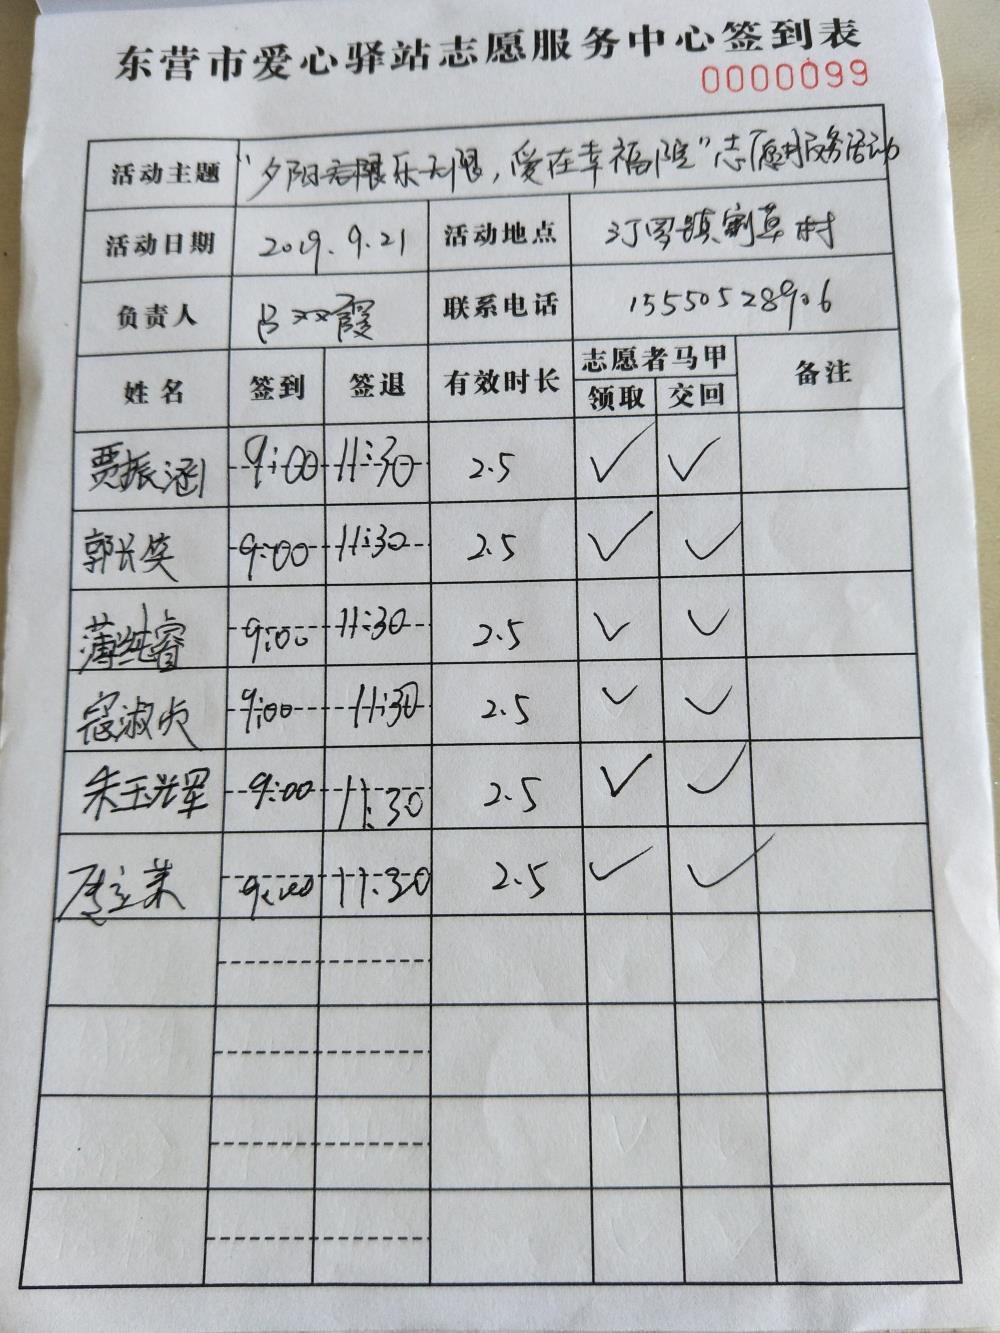 东营市爱心驿站志愿服务中心签到表
0000099
活动主题 “夕阳无限乐无限，爱在幸福院”志愿服务活动
活动日期 2019.9.21 活动地点 汀罗镇割草村
负责人 吕双霞 联系电话 15550528906
姓名 签到 签退 有效时长 志愿者马甲 备注
领取 交回
贾振涵 9:00 11:30 2.5 ✓ ✓
郭长英 9:00 11:30 2.5 ✓ ✓
薄纯睿 9:00 11:30 2.5 ✓ ✓
寇淑贞 9:00 11:30 2.5 ✓ ✓
朱玉翠 9:00 11:30 2.5 ✓ ✓
9:00 11:30 2.5 ✓ ✓